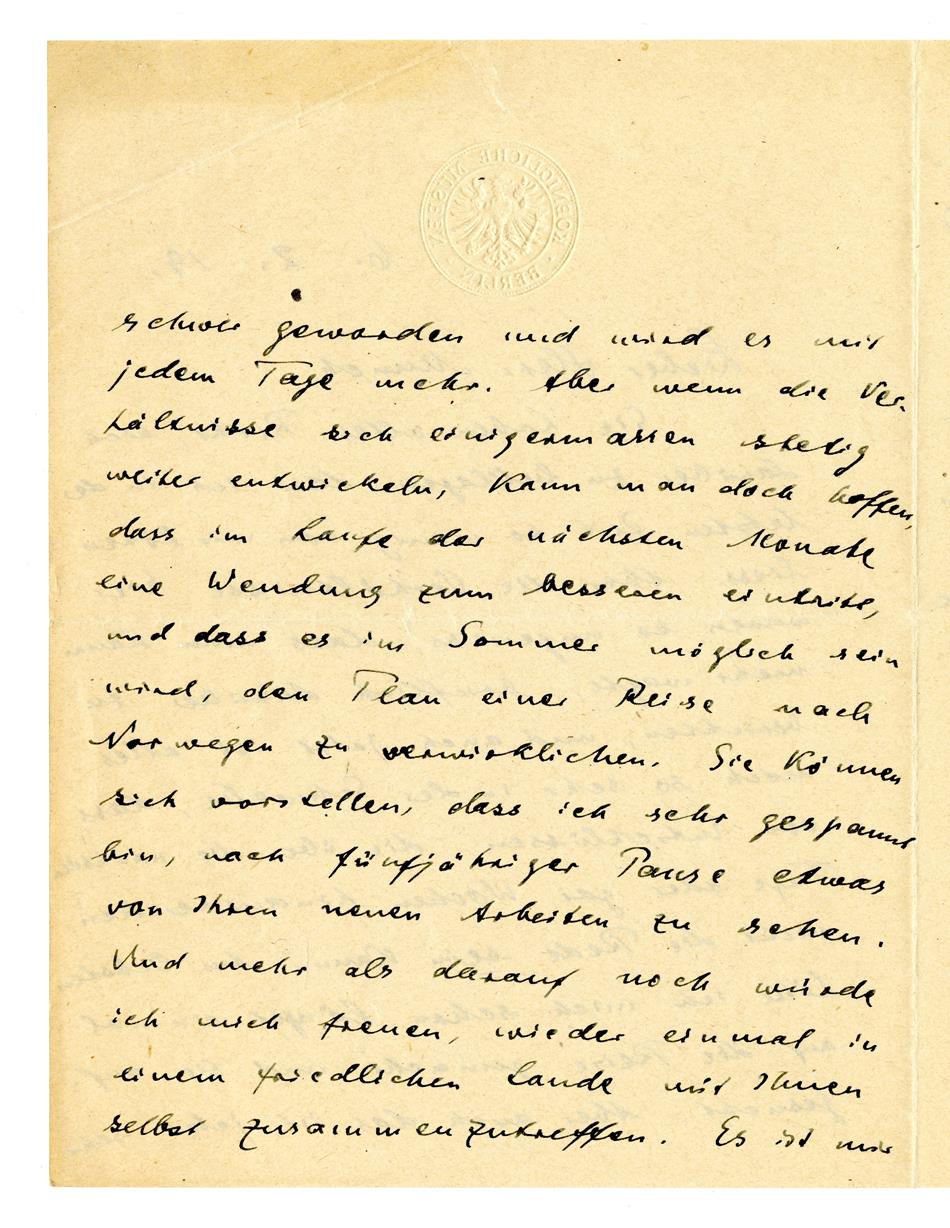 KOENIGLICHE MUSEEN · BERLIN ·
schwer geworden und wird es mit
jedem Tage mehr. Aber wenn die Ver-
hältnisse sich einigermassen stetig
weiter entwickeln, kann man doch hoffen,
dass im Laufe der nächsten Monate
eine Wendung zum besseren eintritt,
und dass es im Sommer möglich sein
wird, den Plan einer Reise nach
Norwegen zu verwirklichen. Sie können
sich vorstellen, dass ich sehr gespannt
bin, nach fünfjähriger Pause etwas
von Ihren neuen Arbeiten zu sehen.
Und mehr als darauf noch würde
ich mich freuen, wieder einmal in
einem friedlichen Lande mit Ihnen
selbst zusammenzutreffen. Es ist mir